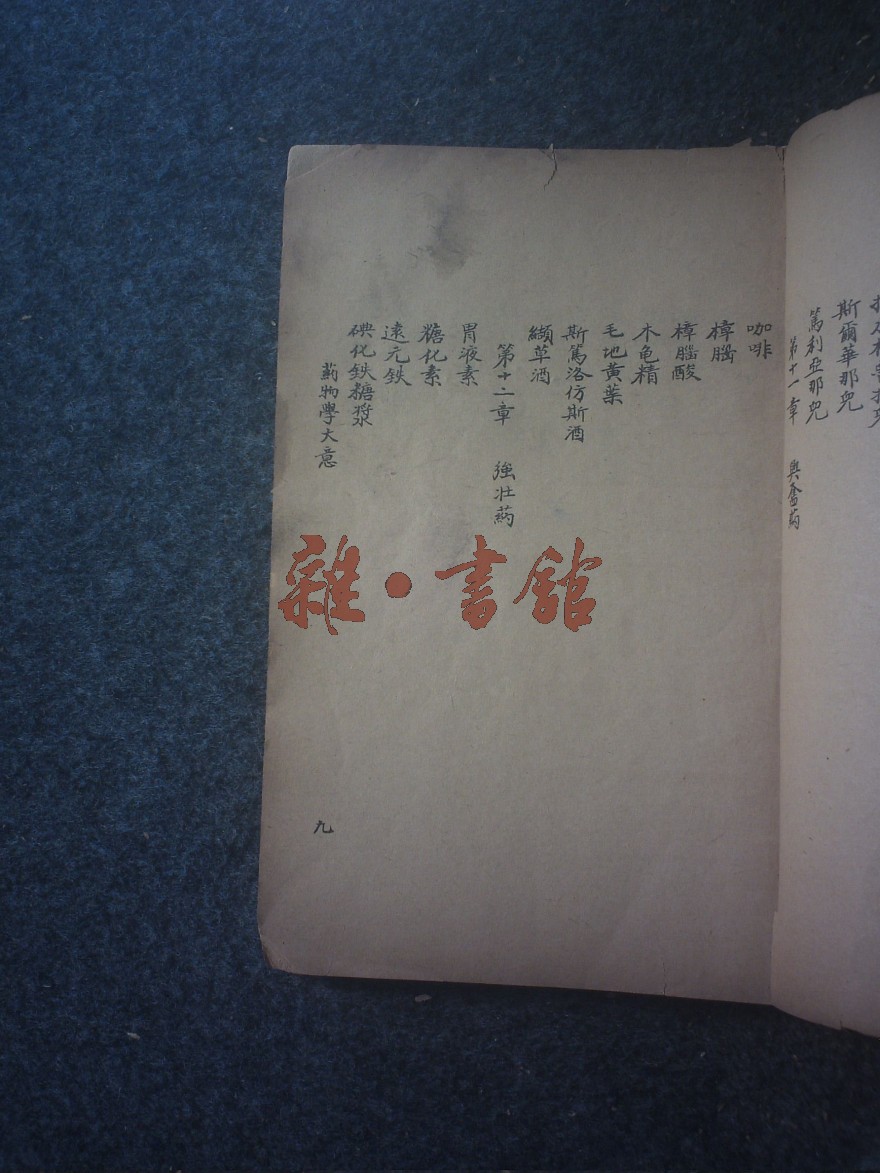 斯爾華那兕
篤利亞那兕
第十一章 興奮葯
咖啡
樟腦
樟腦酸
木龟精
毛地黄葉
斯篤洛仿斯酒
纈草酒
第十二章 強壮葯
胃液素
糖化素
逺元鉄
碘化鉄糖漿
葯物學大意
九
雜·書館